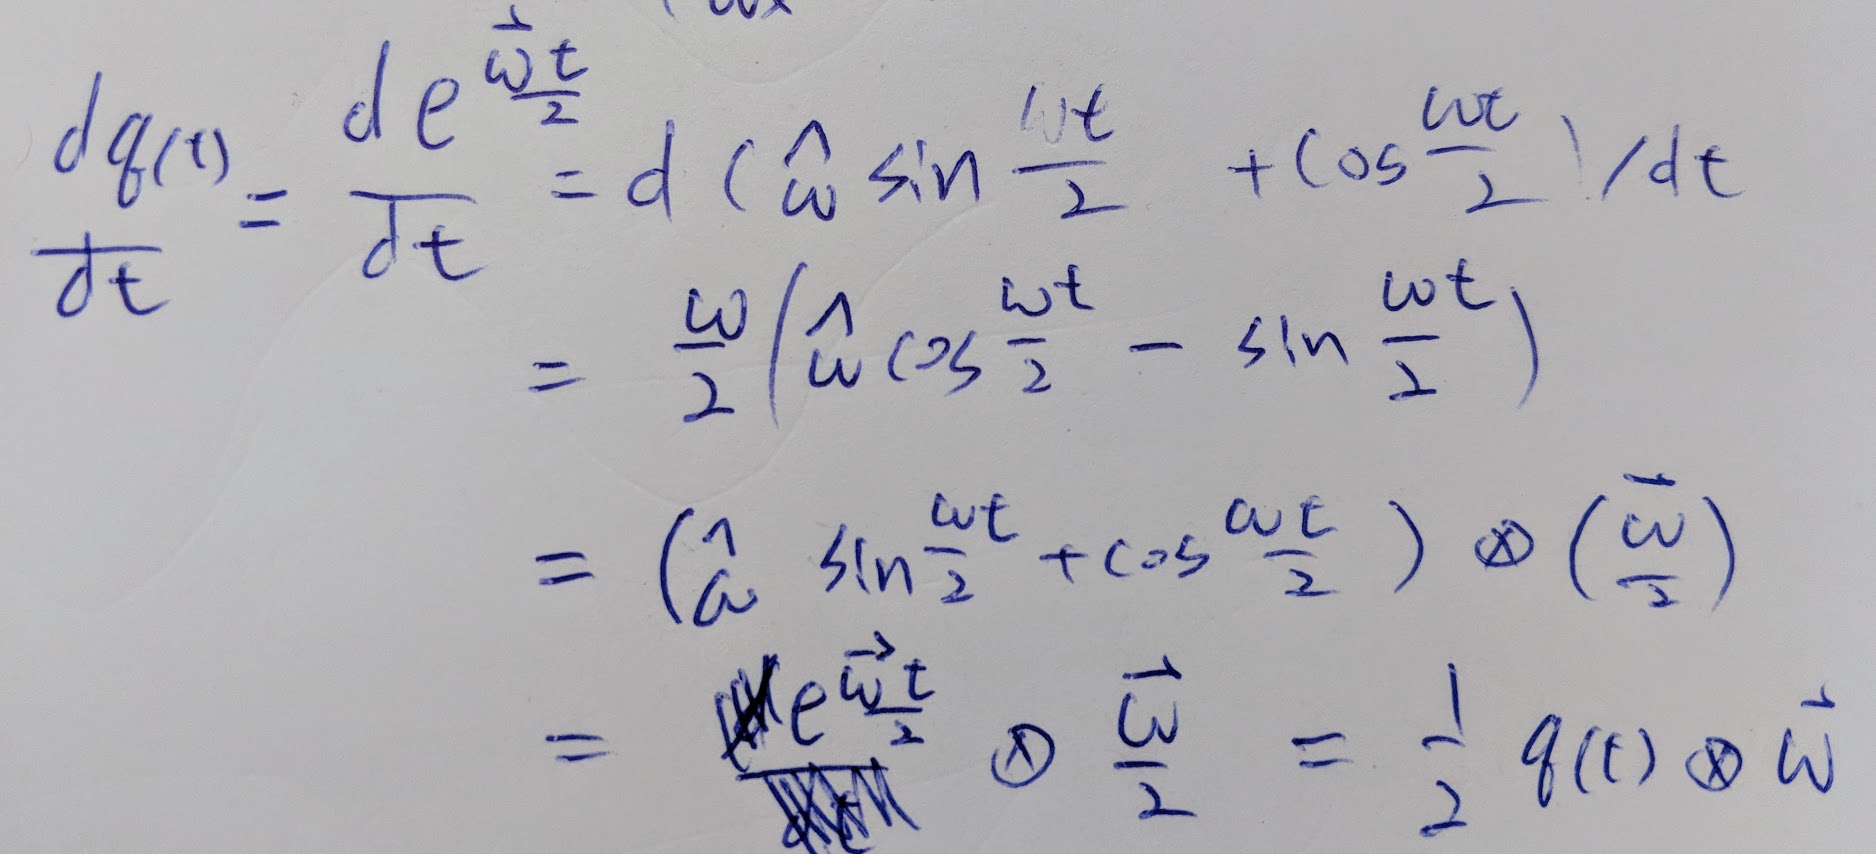 dq(t)/dt = de^{\vec{ω}t/2}/dt = d(\hat{ω} sin ωt/2 + cos ωt/2)/dt
= ω/2 (\hat{ω} cos ωt/2 − sin ωt/2)
= (\hat{ω} sin ωt/2 + cos ωt/2) ⊗ (\vec{ω}/2)
= e^{\vec{ω}t/2} ⊗ \vec{ω}/2 = 1/2 q(t) ⊗ \vec{ω}